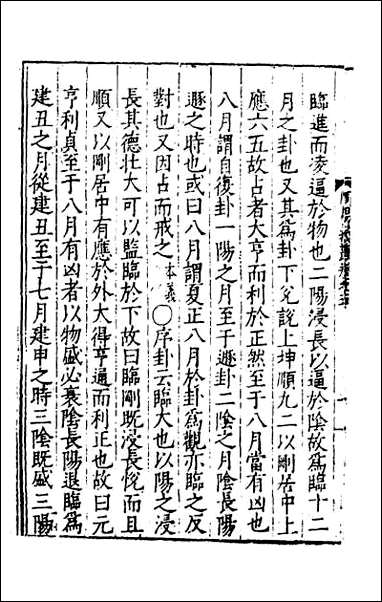 臨進而凌逼於物也二陽浸長以逼於陰故爲臨十二
月之卦也又其爲卦下兌說上坤順九二以剛居中上
應六五故占者大亨而利於正然至于八月當有凶也
八月謂自復卦一陽之月至于遯卦二陰之月陰長陽
遯之時也或曰八月謂夏正八月於卦爲觀亦臨之反
對也又因占而戒之本義○序卦云臨大也以陽之浸
長其德壯大可以監臨於下故曰臨剛既浸長悅而且
順又以剛居中有應於外大得亨通而利正也故曰元
亨利貞至于八月有凶者以物盛必衰陰長陽退臨爲
建丑之月從建丑至于七月建申之時三陰既盛三陽